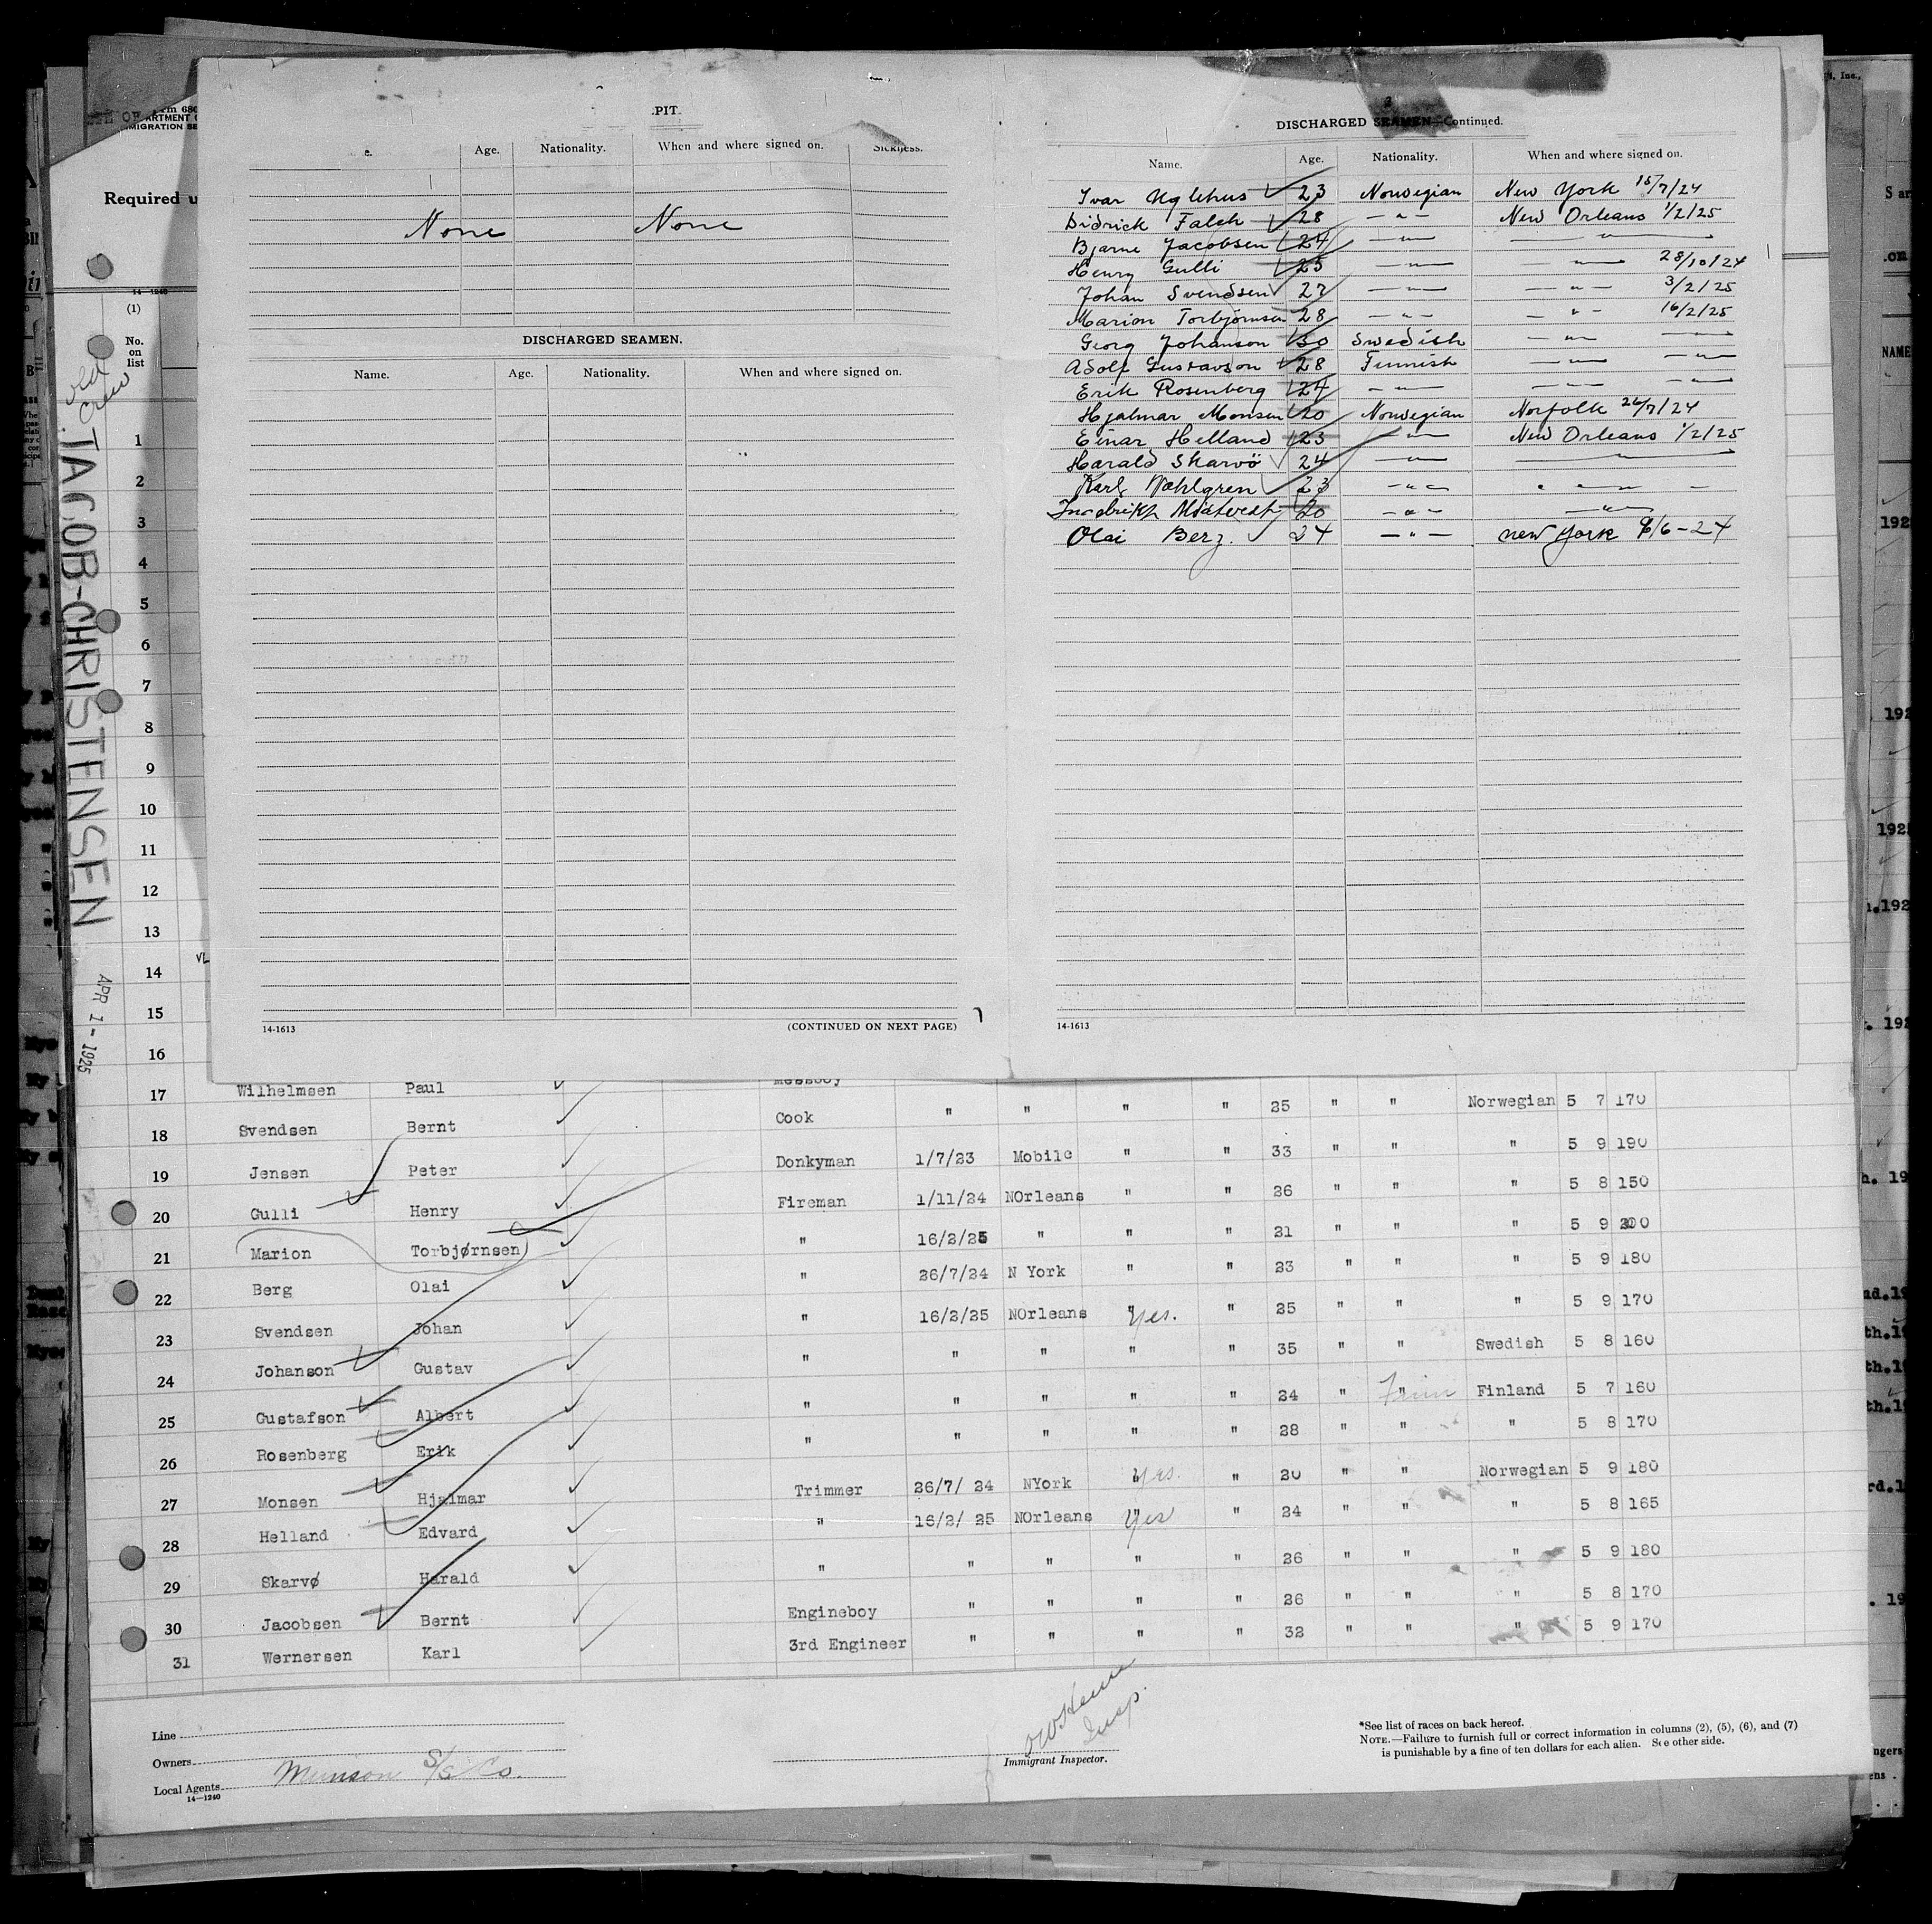 .PIT.
e. Age. Nationality. When and where signed on. Sickness.
None None
DISCHARGED SEAMEN.
Name. Age. Nationality. When and where signed on.
14-1613 (CONTINUED ON NEXT PAGE)
3
DISCHARGED SEAMEN—Continued.
Name. Age. Nationality. When and where signed on.
Ivar 23 Norwegian New York 15/7/24
Didrick Falch 28 — " — New Orleans 1/2/25
Bjarne Jacobsen 24 — " — — " —
Henry Gulli 25 — " — — " — 28/10/24
Johan Svendsen 27 — " — — " — 3/2/25
Marion Torbjörnsen 28 — " — — " — 16/2/25
Georg Johanson 30 Swedish — " — — " —
Adolf Gustavson 28 Finnish — " — — " —
Erik Rosenberg 24 — " — — " — — " —
Hjalmar Monsen 20 Norwegian Norfolk 26/7/24
Einar Helland 23 — " — New Orleans 1/2/25
Harald Skarvö 24 — " — — " —
Karl Wahlgren 23 — " — — " —
20 — " — — " —
Olai Berg. 24 — " — New York 9/6-24
14-1613
Required u
14—1240
(1)
No. on list
old crew
JACOB-CHRISTENSEN APR 1-1925
1
2
3
4
5
6
7
8
9
10
11
12
13
14
15
16
17 Wilhelmsen Paul Messboy
18 Svendsen Bernt Cook " " " " 25 " " Norwegian 5 7 170
19 Jensen Peter Donkyman 1/7/23 Mobile " " 33 " " " 5 9 190
20 Gulli Henry Fireman 1/11/24 NOrleans " " 26 " " " 5 8 150
21 Marion Torbjørnsen " 16/2/25 " " " 21 " " " 5 9 200
22 Berg Olai " 26/7/24 N York " " 23 " " " 5 9 180
23 Svendsen Johan " 16/2/25 NOrleans " Yes. " 25 " " " 5 9 170
24 Johanson Gustav " " " " " 35 " " Swedish 5 8 160
25 Gustafson Albert " " " " " 24 " " Finn Finland 5 7 160
26 Rosenberg Erik " " " " " 28 " " " 5 8 170
27 Monsen Hjalmar Trimmer 26/7/ 24 NYork " Yes. " 20 " " Norwegian 5 9 180
28 Helland Edvard " 16/2/ 25 NOrleans " Yes " 24 " " " 5 8 165
29 Skarvø Harald " " " " " 26 " " " 5 9 180
30 Jacobsen Bernt Engineboy " " " " 26 " " " 5 8 170
31 Wernersen Karl 3rd Engineer " " " " 32 " " " 5 9 170
Line
Owners
Local Agents Munson S/S Co.
14—1240
Insp.
Immigrant Inspector.
*See list of races on back hereof.
NOTE.—Failure to furnish full or correct information in columns (2), (5), (6), and (7)
is punishable by a fine of ten dollars for each alien. See other side.